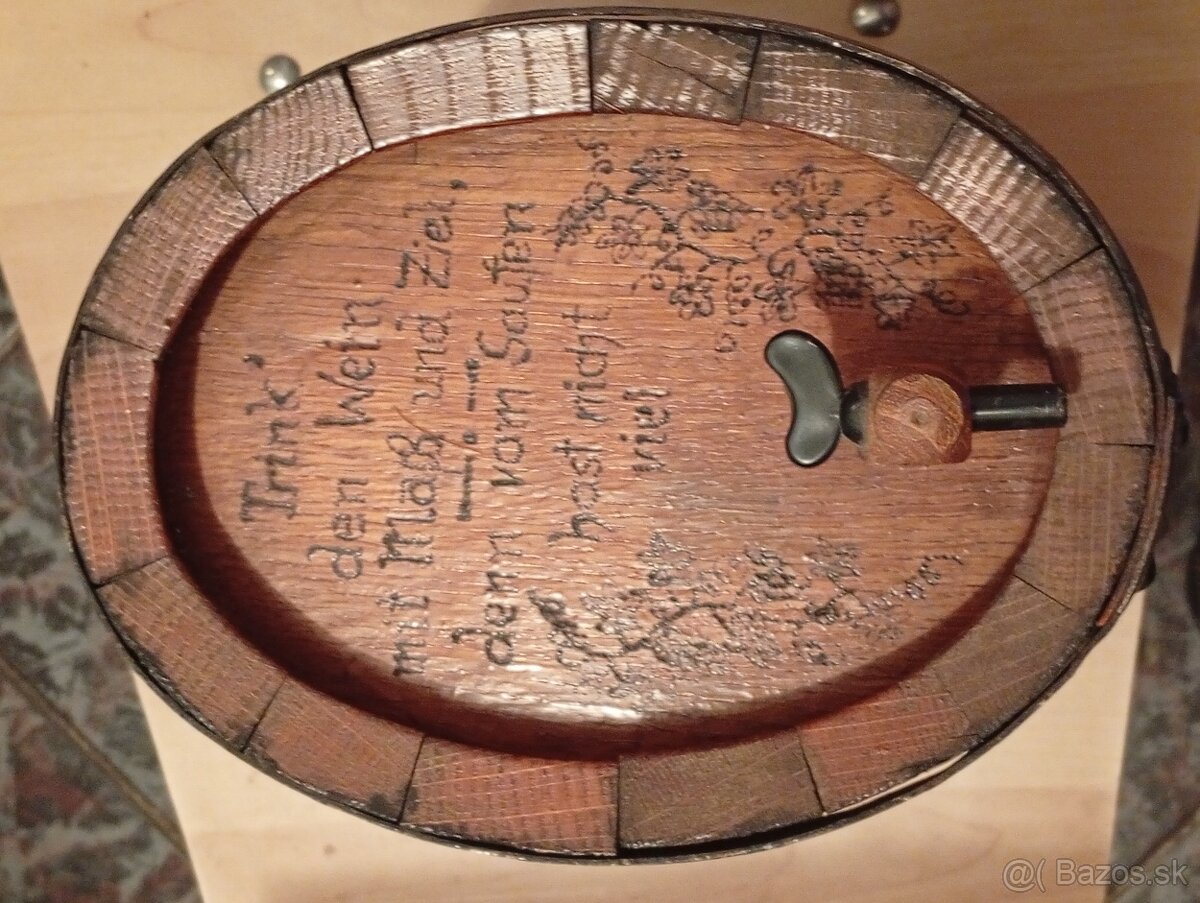 Trink'
den Wein
mit Maß und Ziel,
denn vom Saufen
hast nicht
viel
@( Bazos.sk